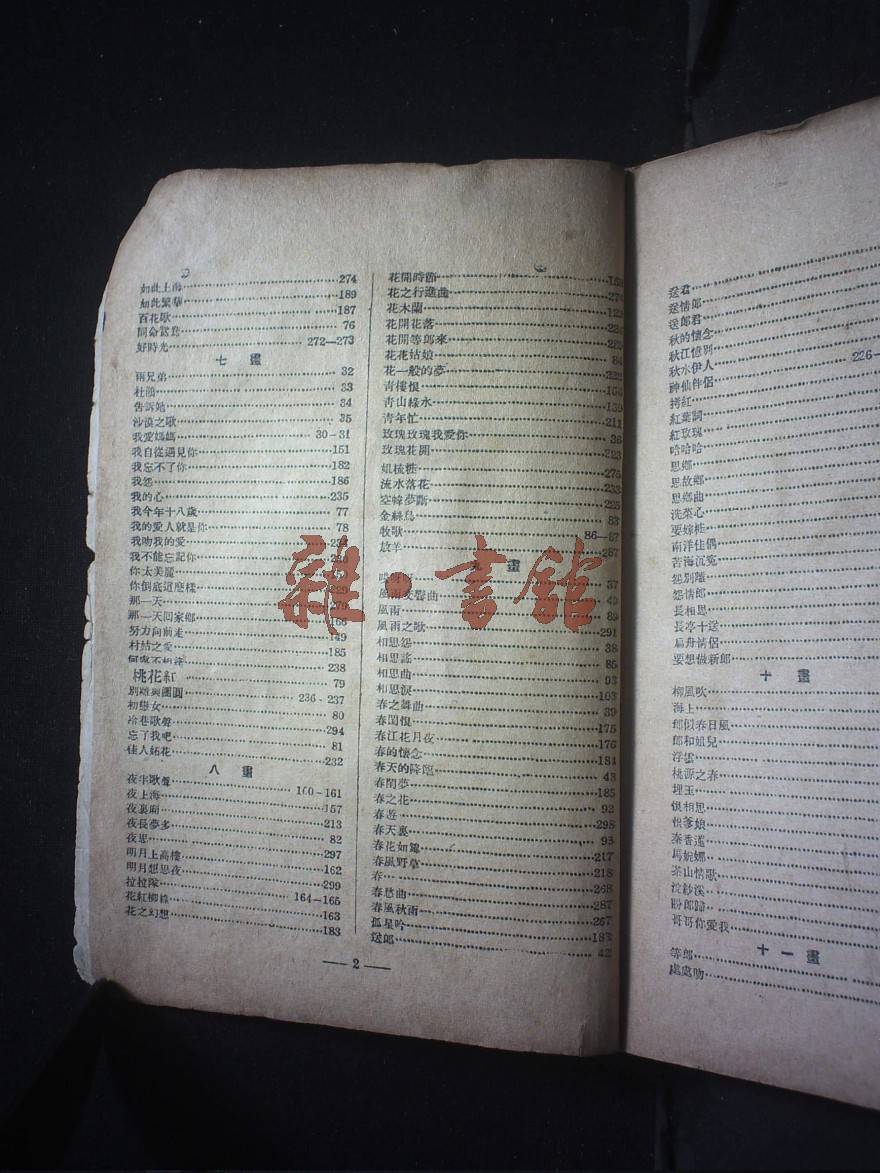 如此上海 274
如此繁華 189
百花歌 187
同命鴛鴦 76
好時光 272—273
七 畫
兩兄弟 32
杜鵑 33
告訴她 34
沙漠之歌 35
我愛媽媽 30-31
我自從遇見你 151
我忘不了你 182
我怨 186
我的心 235
我今年十八歲 77
我的愛人就是你 78
我吻我的愛
我不能忘記你
你太美麗
你倒底這麼樣
那一天
那一天回家鄉 166
努力向前走 149
村姑之愛 185
238
桃花紅 79
別離與團圓 236-237
初戀女 80
冷巷歌聲 294
忘了我吧 81
佳人拓花 232
八 畫
夜半歌聲 160-161
夜上海 157
夜裏廂 213
夜長夢多 82
夜思 297
明月上高樓 162
明月想思夜 299
拉拉隊 164-165
花紅柳綠 163
花之幻想 183
花開時節
花之行進曲 274
花木蘭
花開花落
花開等郎來
花花姑娘
花一般的夢
青樓恨
青山綠水 159
青年忙 211
玫瑰玫瑰我愛你 36
玫瑰花開 223
姐梳粧 275
流水落花 233
空幃夢斷 225
金絲鳥 83
牧歌 86-87
放羊 287
九 畫
37
風雨交響曲 40
風雨 89
風雨之歌 291
相思怨 38
相思謠 85
相思曲 93
相思淚 103
春之舞曲 39
春閨恨 175
春江花月夜 176
春的懷念 184
春天的降臨 43
春閨夢 185
春之花 92
春遊 298
春天裏 93
春花如錦 217
春風野草 218
春 268
春愁曲 287
春風秋雨 267
孤星吟 183
送郎 42
— 2 —
送君
送情郎
送郎君
秋的懷念
秋江憶別
秋水伊人 226-
神仙伴侶
拷紅
紅葉詞
紅玫瑰
哈哈哈
思鄉
思故鄉
思鄉曲
洗菜心
要嫁粧
南洋佳偶
苦海沉冤
怨別離
怨情郎
長相思
長亭十送
扁舟情侶
要想做新郎
十 畫
柳風吹
海上
郎似春日風
郎和姐兒
浮雲
桃源之春
埋玉
恨相思
秦香蓮
馬妮娜
茶山情歌
浣紗溪
盼郎歸
哥哥你愛我
十一 畫
等郎
處處吻
雜·書館